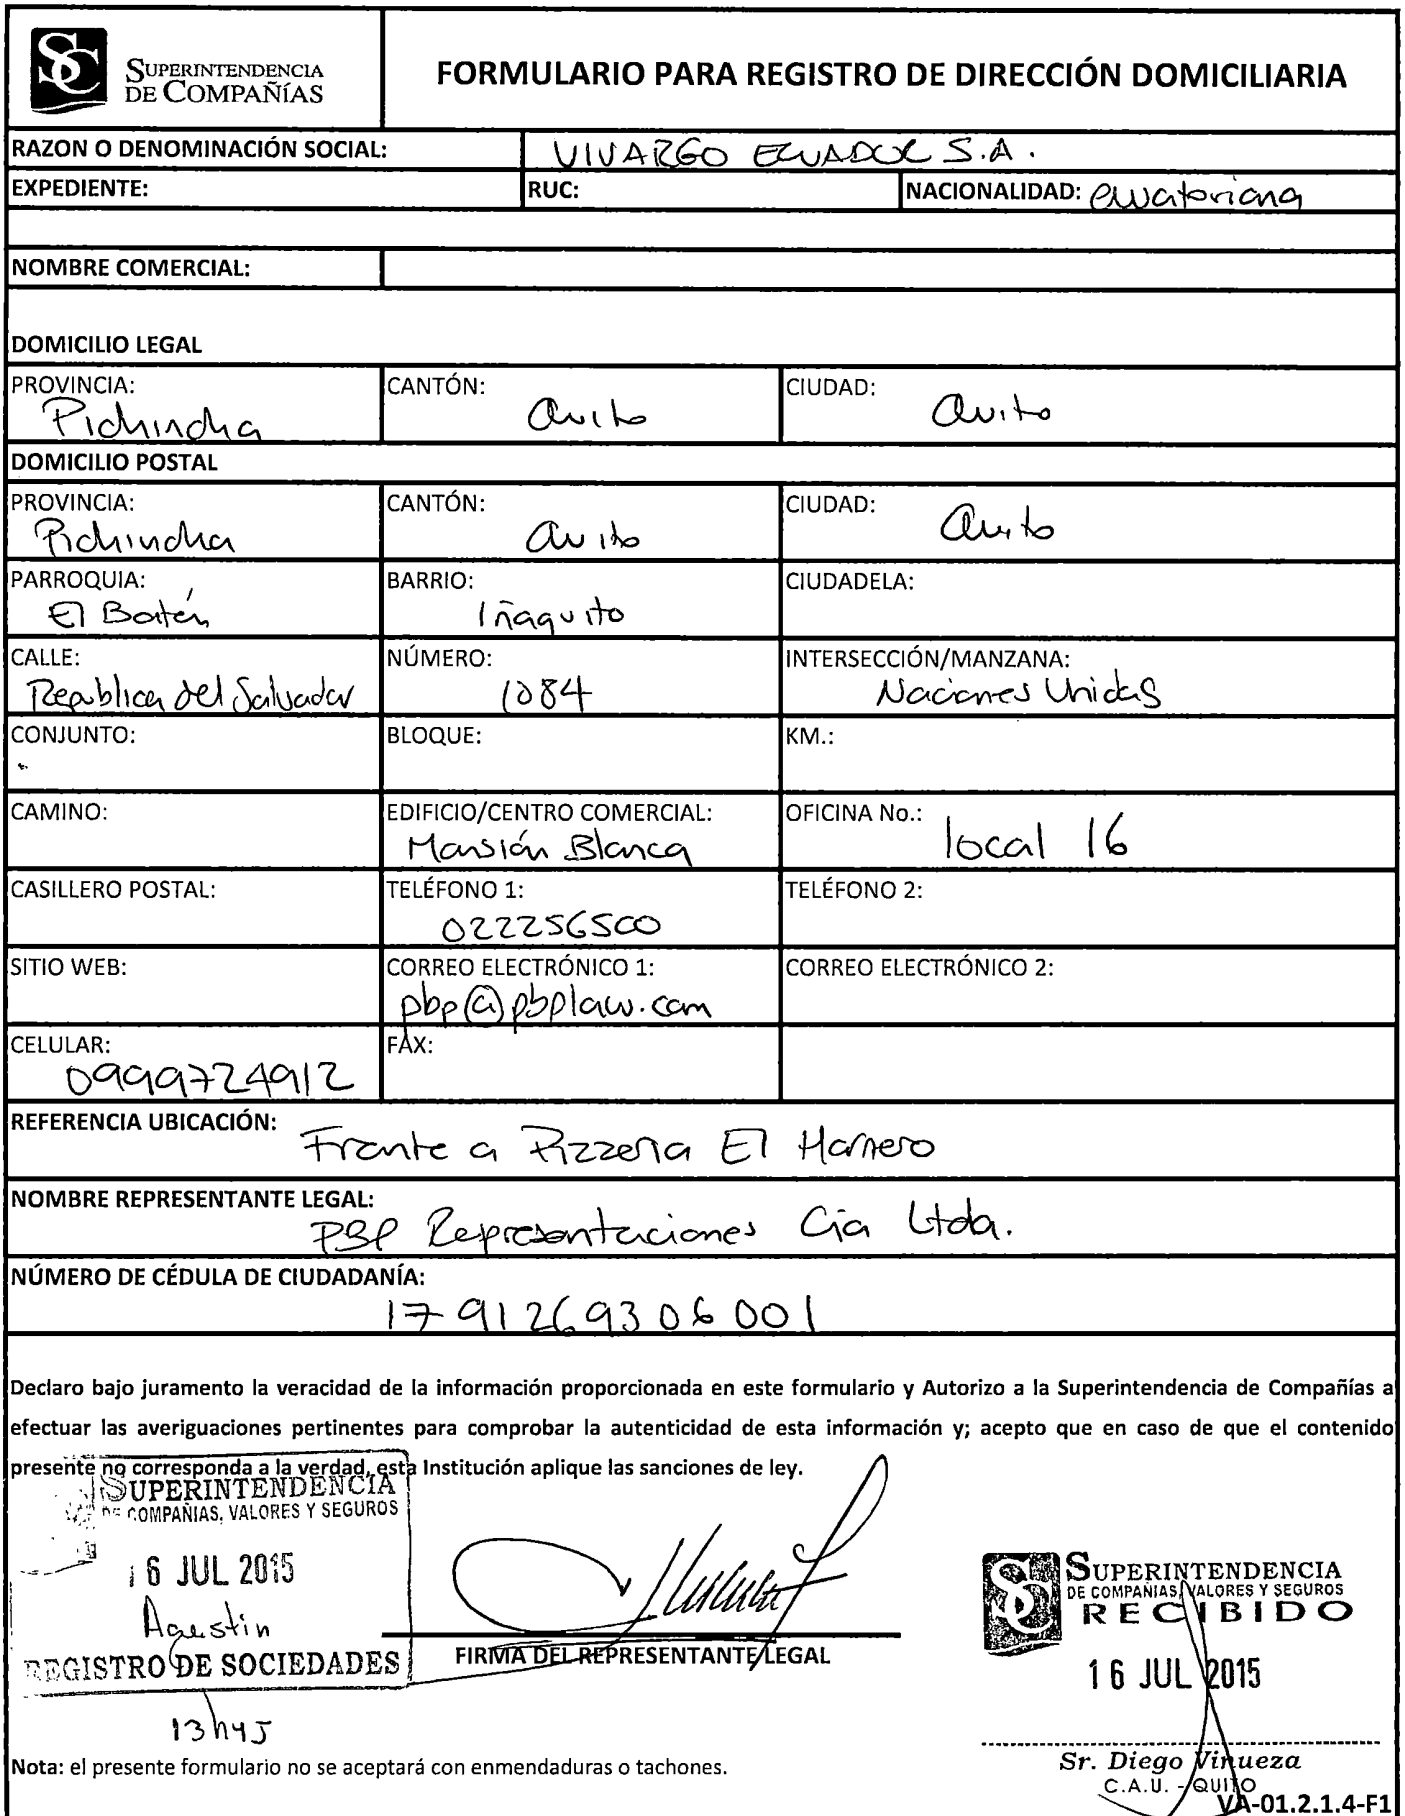 SC SUPERINTENDENCIA DE COMPAÑÍAS
FORMULARIO PARA REGISTRO DE DIRECCIÓN DOMICILIARIA
RAZON O DENOMINACIÓN SOCIAL: VIVARGO ECUADOR S.A.
EXPEDIENTE: RUC: NACIONALIDAD: ecuatoriana
NOMBRE COMERCIAL:
DOMICILIO LEGAL
PROVINCIA: CANTÓN: CIUDAD:
Pichincha Quito Quito
DOMICILIO POSTAL
PROVINCIA: CANTÓN: CIUDAD:
Pichincha Quito Quito
PARROQUIA: BARRIO: CIUDADELA:
El Batán Iñaquito
CALLE: NÚMERO: INTERSECCIÓN/MANZANA:
Republica del Salvador 1084 Naciones Unidas
CONJUNTO: BLOQUE: KM.:
CAMINO: EDIFICIO/CENTRO COMERCIAL: OFICINA No.:
Mansión Blanca local 16
CASILLERO POSTAL: TELÉFONO 1: TELÉFONO 2:
022256500
SITIO WEB: CORREO ELECTRÓNICO 1: CORREO ELECTRÓNICO 2:
pbp@pbplaw.com
CELULAR: FAX:
0999724912
REFERENCIA UBICACIÓN: Frente a Pizzeria El Hornero
NOMBRE REPRESENTANTE LEGAL:
PBP Representaciones Cia Ltda.
NÚMERO DE CÉDULA DE CIUDADANÍA:
1791269306001
Declaro bajo juramento la veracidad de la información proporcionada en este formulario y Autorizo a la Superintendencia de Compañías a
efectuar las averiguaciones pertinentes para comprobar la autenticidad de esta información y; acepto que en caso de que el contenido
presente no corresponda a la verdad, esta Institución aplique las sanciones de ley.
SUPERINTENDENCIA
DE COMPAÑIAS, VALORES Y SEGUROS
16 JUL 2015
Agustin
REGISTRO DE SOCIEDADES
13h45
FIRMA DEL REPRESENTANTE LEGAL
SC SUPERINTENDENCIA
DE COMPAÑIAS, VALORES Y SEGUROS
RECIBIDO
16 JUL 2015
Sr. Diego Vinueza
C.A.U. - QUITO
Nota: el presente formulario no se aceptará con enmendaduras o tachones.
VA-01.2.1.4-F1